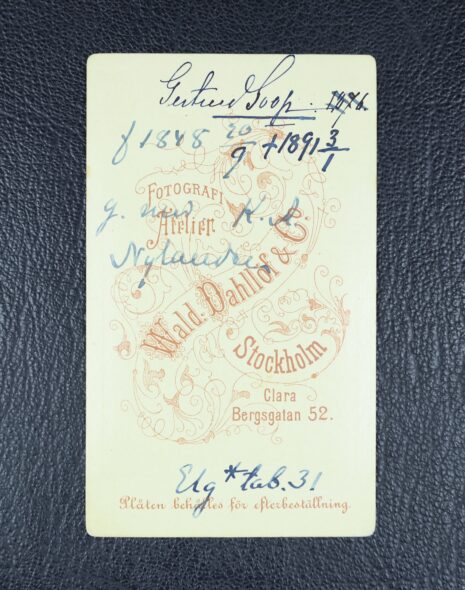 Gertrud Goop.
f 1848 20/9 + 1891 3/1
FOTOGRAFI
g. med K. A.
Atelier
Nylander
Wald. Dahllöf & C.
Stockholm
Clara
Bergsgatan 52.
Elg * tab. 31
Plåten behålles för efterbeställning